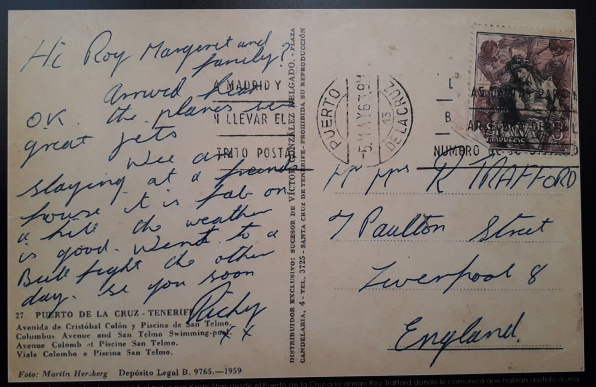 Hi Roy Margeret and
family?
Arrived here
O.K. the planes were
great jets
Wee are
staying at a friends
house it is fab on
a hill the weather
is good. Went to a
Bull fight the other
day. se you soon
Richy
x x
27 PUERTO DE LA CRUZ - TENERIFE
Avenida de Cristóbal Colón y Piscina de San Telmo.
Columbus Avenue and San Telmo Swimming-pool.
Avenue Colomb et Piscine San Telmo.
Viale Colombo e Piscina San Telmo.
Foto: Martin Herzberg Depósito Legal B. 9765.—1959
DISTRIBUIDOR EXCLUSIVO: SUCESOR DE VICTOR GONZÁLEZ DELGADO. - PLAZA
CANDELARIA, 4 - TEL. 3725 - SANTA CRUZ DE TENERIFE - PROHIBIDA SU REPRODUCCIÓN
A MADRID Y
LLEVAR EL
TRITO POSTAL
PUERTO
DE LA CRUZ
NUMERO
ESPAÑA
R TRAFFORD
7 Paulton Street
Liverpool 8
England.